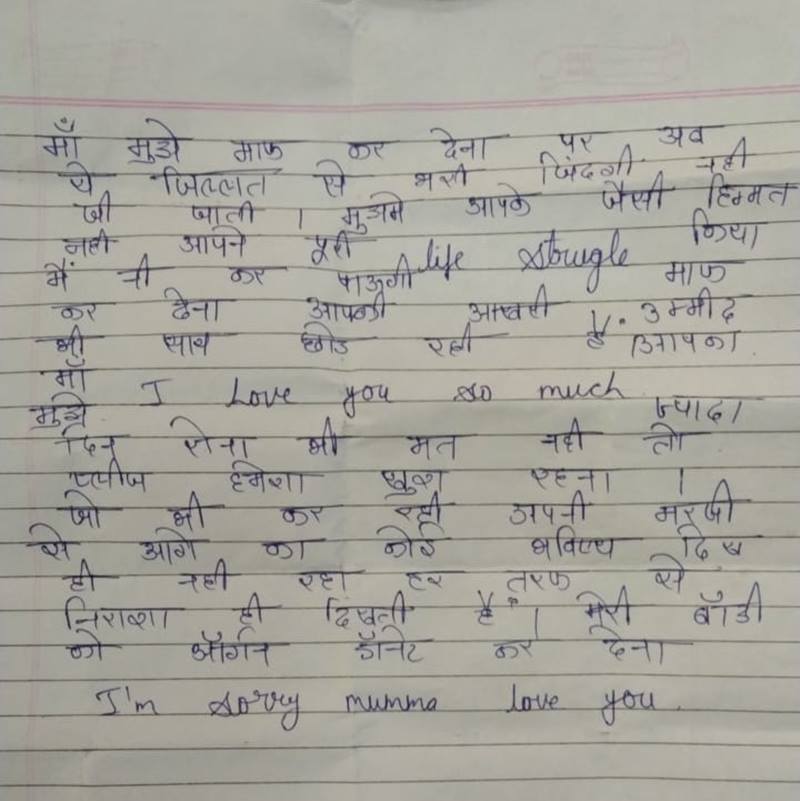 माँ मुझे माफ कर देना पर अब
ये जिल्लत से भरी जिंदगी नही
जी जाती । मुझमे आपके जैसी हिम्मत
नही आपने पूरी life strugle किया
मैं नी कर पाऊगी माफ
कर देना आपकी आखरी उम्मीद
भी साथ छोड रही है । आपका
माँ I love you so much
मुझे ज्यादा
दिन रोना भी मत नही तो
प्लीज हमेशा खुश रहना ।
जो भी कर रही अपनी मरजी
से आगे का कोई भविष्य दिख
ही नही रहा हर तरफ से
निराशा ही दिखती है । मेरी बॉडी
को ऑर्गन डॉनेट कर देना
I'm sorry mumma love you.